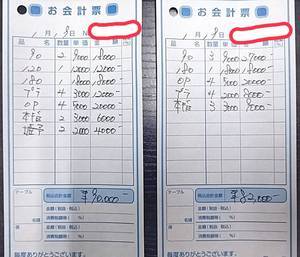 お会計票
1月8日 N
品 名 数量 単価 金 額
90 2 9000 18000-
120 1 12000 12000-
180 1 18000 18000-
プラ 4 3000 12000-
OP 4 5000 20000-
本指 3 2000 6000-
延長 2 2000 4000-
テーブル
税込合計金額
¥90,000-
名様
金額(税抜・税込)
消費税額等
毎度ありがとうございます。
お会計票
1月9日
数量 単価 金 額
90 3 9000 27000-
180 1 18000 18000-
OP 4 5000 20000-
プラ 4 2000 8000-
本指 3 3000 9000-
テーブル
税込合計金額
¥83,000-
名様
金額(税抜・税込)
消費税額等
毎度ありがとうございます。